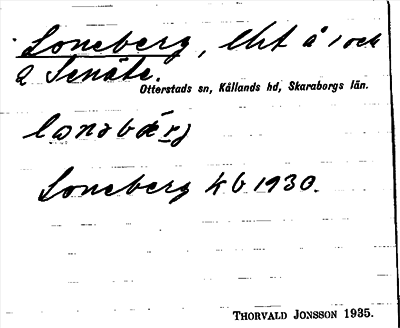 Loneberg, lht å 1 och
2 Senäte.
Otterstads sn, Kållands hd, Skaraborgs län.
Loneberg kb 1930.
THORVALD JONSSON 1935.